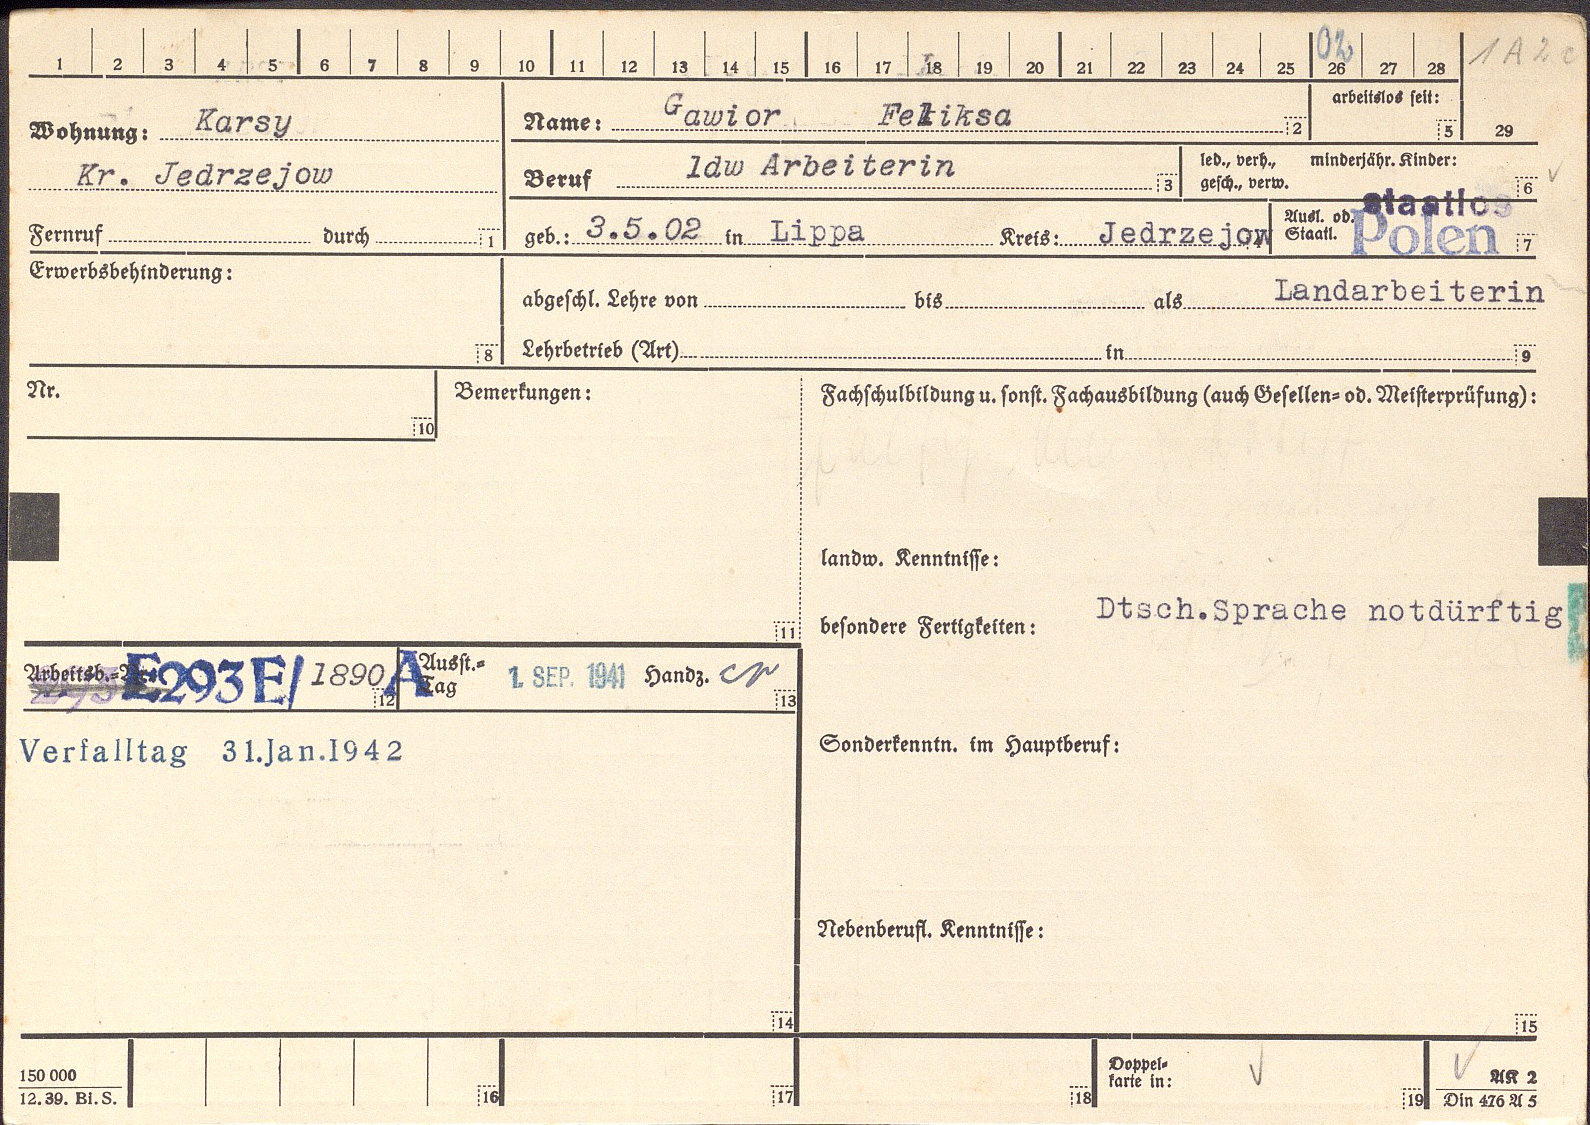 1 2 3 4 5 6 7 8 9 10 11 12 13 14 15 16 17 18 19 20 21 22 23 24 25 26 27 28
02
1 A 2 c
Wohnung: Karsy
Kr. Jedrzejow
Fernruf durch 1
Name: Gawior Feliksa 2
arbeitslos seit: 5
29
Beruf ldw Arbeiterin 3
led., verh., minderjähr. Kinder:
gesch., verw. 6
geb.: 3.5.02 in Lippa Kreis: Jedrzejow
Ausl. od. staatlos
Staatl. Polen 7
Erwerbsbehinderung:
8
abgeschl. Lehre von bis als Landarbeiterin
Lehrbetrieb (Art) in 9
Nr.
10
Bemerkungen:
11
Fachschulbildung u. sonst. Fachausbildung (auch Gesellen- od. Meisterprüfung):
landw. Kenntnisse:
besondere Fertigkeiten: Dtsch.Sprache notdürftig
Arbeitsb.-Nr. E293E/ 1890 A 12
Ausst.-
Tag 1. SEP. 1941 Handz. 13
Verfalltag 31.Jan.1942
14
Sonderkenntn. im Hauptberuf:
Nebenberufl. Kenntnisse:
15
150 000
12.39. Bi.S.
16
17
18
Doppel-
karte in:
19
AK 2
Din 476 A 5